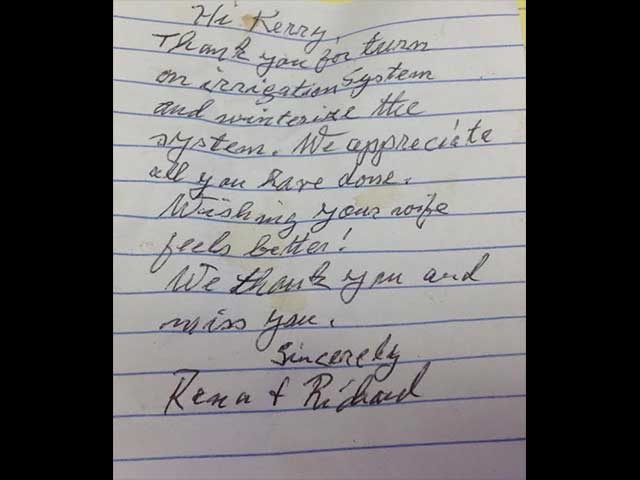 Hi Kerry,
Thank you for turn
on irrigation system
and winterize the
system. We appreciate
all you have done.
Wishing your wife
feels better!
We thank you and
miss you.
Sincerely
Rena & Richard